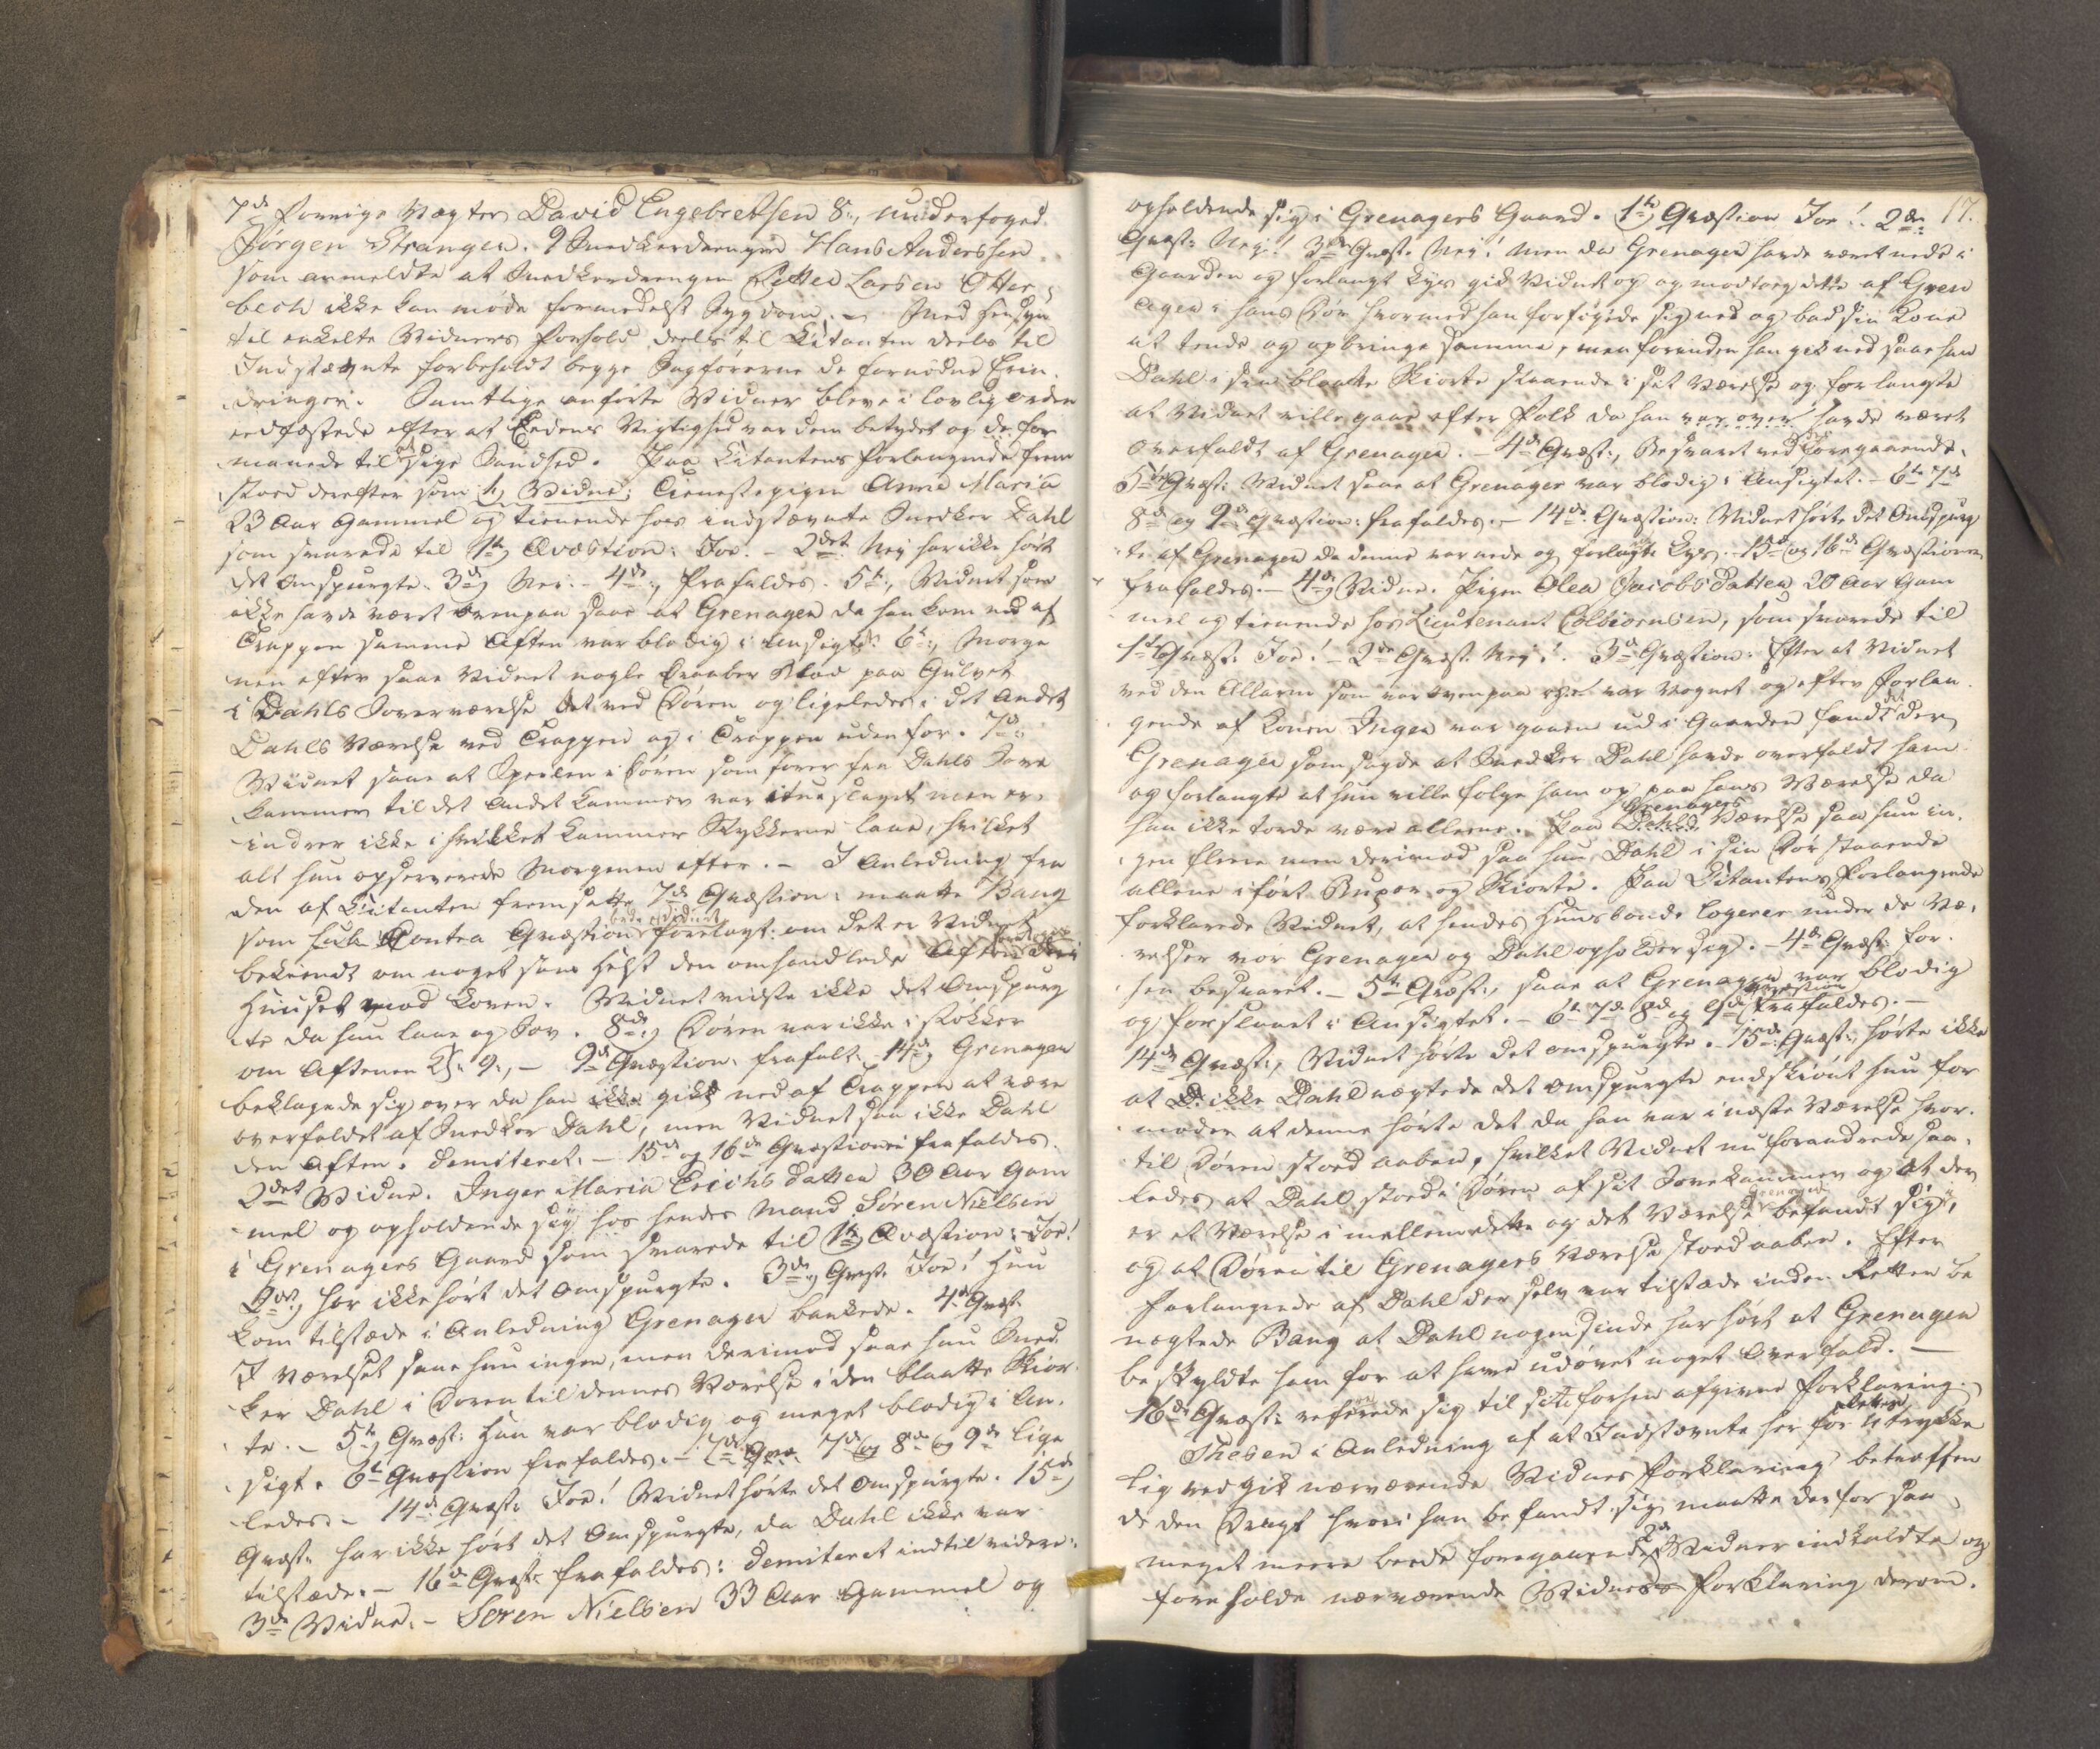 7de forrige Vægter David Engebretsen 8, Underfoged
Jørgen Stranger. 9 Snedkerdrengen Hans Anderssen
som anmeldte at Snedkerdrengen Petter Larsen Otter
bech ikke kan møde formedelst Sygdom. – Med Hensyn
til enkelte Vidners Forhold deels til Citanten deels til
Indstævnte forbeholdt begge Sagførerne de fornødne Erin
dringer. Samtlige anførte Vidner bleve i lovlig Orden
eedfæstede efter at Eedens Vigtighed var dem betydet og de for
manede til at sige Sandhed. Paa Citantens Forlangende frem
stod derefter som 1te Vidne: Tienestepigen Anne Maria
23 Aar gammel og tienende hos indstævnte Snedker Dahl
som svarede til 1te Qvæstion: Joe. – 2det Nej har ikke hørt
det omspurgte. 3de Nei. – 4de, frafaldes. 5te, Vidnet som
ikke havde været ovenpaa saae at Grenager da han kom ned af
Trappen samme Aften var blodig i Ansigtet. 6te, Morge
nen efter saae Vidnet nogle Draaber Blod paa Gulvet
i Dahls Soveværelse tæt ved Døren og ligeledes i det andet
Dahls Værelse ved Trappen og i Trappen udenfor. 7de
Vidnet saae at Speilen i Døren som fører fra Dahls Sove
kammer til det andet Kammer var itueslaget men er
indrer ikke i hvilket Kammer Stykkerne laae, hvilket
alt hun opserverede Morgenen efter. – I Anledning fra
den af Citanten fremsatte 7de Qvæstion: maatte Bang
som Contra Qvæstion forelagt: om det er Vidnet
bekiendt om noget som helst den omhandlede Aften
Huuset mod Konen. Vidnet vidste ikke det omspurg
te da hun laae og Sov. 8de, Døren var ikke i Stykker
om Aftenen Kl. 9, – 9de Qvæstion frafalt. 14de, Grenager
beklagede sig over da han ikke gik ned af Trappen at være
overfaldet af Snedker Dahl, men Vidnet saa ikke Dahl
den Aften. Demiteret. – 15de og 16de Qvæstioner frafaldes.
2det Vidne. Inger Maria Erichsdatter 30 Aar gam
mel og opholdende sig hos hendes Mand Søren Nielsen
i Grenagers Gaard som svarede til 1te Qvæstion: Joe!
2det, har ikke hørt det omspurgte. 3de, Qvæst. Joe! Hun
kom tilstæde i Anledning Grenager bankede. 4de Qvæst.
I Værelset saae hun ingen, men derimod saae hun Sned
ker Dahl i Døren til dennes Værelse i den blaatte Skior
te. – 5te Qvæst: Han var blodig og meget blodig i An
sigt. 6te Qvæstion frafaldes. – 7de 8de og 9de lige
ledes. – 14de Qvæst: Joe! Vidnet hørte det omspurgte. 15de
Qvæst. har ikke hørt det omspurgte, da Dahl ikke var
tilstæde. – 16de Qvæst. frafaldes: Demiteret indtil videre.
3de Vidne. – Søren Nielsen 33 Aar gammel og
17.
opholdende sig i Grenagers Gaard. 1te Qvæstion Joe! 2den
Qvæst: Nej! 3de Qvæst. Nej! Men da Grenager havde været nede i
Gaarden og forlangt Lys gik Vidnet op og modtog dette af Gren
ager i hans Dør hvormed han forføyede sig ned og bad sin Kone
at tende og opbringe samme, men forinden han gik ned saae han
Dahl i sin blaatte Skiorte staaende i sit Værelse og forlangte
at Vidnet ville gaae efter Folk da han var over havde været
overfaldt af Grenager. – 4de Qvæst, Besvaret ved Foregaaende.
5te Qvæst: Vidnet saae at Grenager var blodig i Ansigtet. – 6te 7de
8de og 9de Qvæstion: frafaldes. – 14de Qvæstion: Vidnet hørte det Omspurg
te af Grenager da denne var nede og forlangte Lys. 15de og 16de Qvæstioner
frafaldes. – 4de Vidne. Pigen Olea Jacobsdatter 20 Aar gam
mel og tienende hos Lieutenant Colbiørnsen, som svarede til
1te Qvæst: Joe! – 2de Qvæst. Nej! 3de Qvæstion: Efter at Vidnet
ved den Allarm som var ovenpaa var vognet og efter Forlan
gende af Konen Inger var gaaen ud i Gaarden fandt det der
Grenager som sagde at Snedker Dahl havde overfaldt ham
og forlangte at hun ville følge ham op paa hans Værelse da
han ikke torde være allene. Paa Dahls Grenagers Værelse saa hun in
gen flere men derimod saa hun Dahl i sin Dør staaende
allene iført Buxer og Skiorte. Paa Citantens Forlangende
forklarede Vidnet, at hendes Huusbonde logerer under de Væ
relser vor Grenager og Dahl opholder sig. – 4de Qvæst: for
hen besvaret. – 5te Qvæst, saae at Grenager var blodig
og forslaaet i Ansigtet. – 6te 7de 8de og 9de Qvæstion frafaldes. –
14de Qvæst, Vidnet hørte det omspurgte. 15de Qvæst, hørte ikke
at D. ikke Dahl nægtede det omspurgte endskiønt hun for
moder at denne hørte det da han var i næste Værelse hvor
til Døren stoed aaben, hvilket Vidnet nu forandrede saa
ledes at Dahl stoed i Døren af sit Sovekammer og at der
er et Værelse i mellem dette og det Værelse Grenager befandt sig i,
og at Døren til Grenagers Værelse stoed aaben. Efter
Forlangende af Dahl der selv var tilstæde inden Retten be
nægtede Bang at Dahl nogensinde har hørt at Grenager
beskyldte ham for at have udøvet noget Overfald. –
16de Qvæst: refererede sig til sit forhen afgivne Forklaring.
Thesen i Anledning af at Indstævnte her for Retten udtrykke
lig vedgik nærværende Vidnes Forklaring betræffen
de den Dragt hvori han befandt sig maatte derfor saa
meget meere bede foregaaende 2de Vidner indkaldte og
foreholde nærværende Vidnes Forklaring derom.